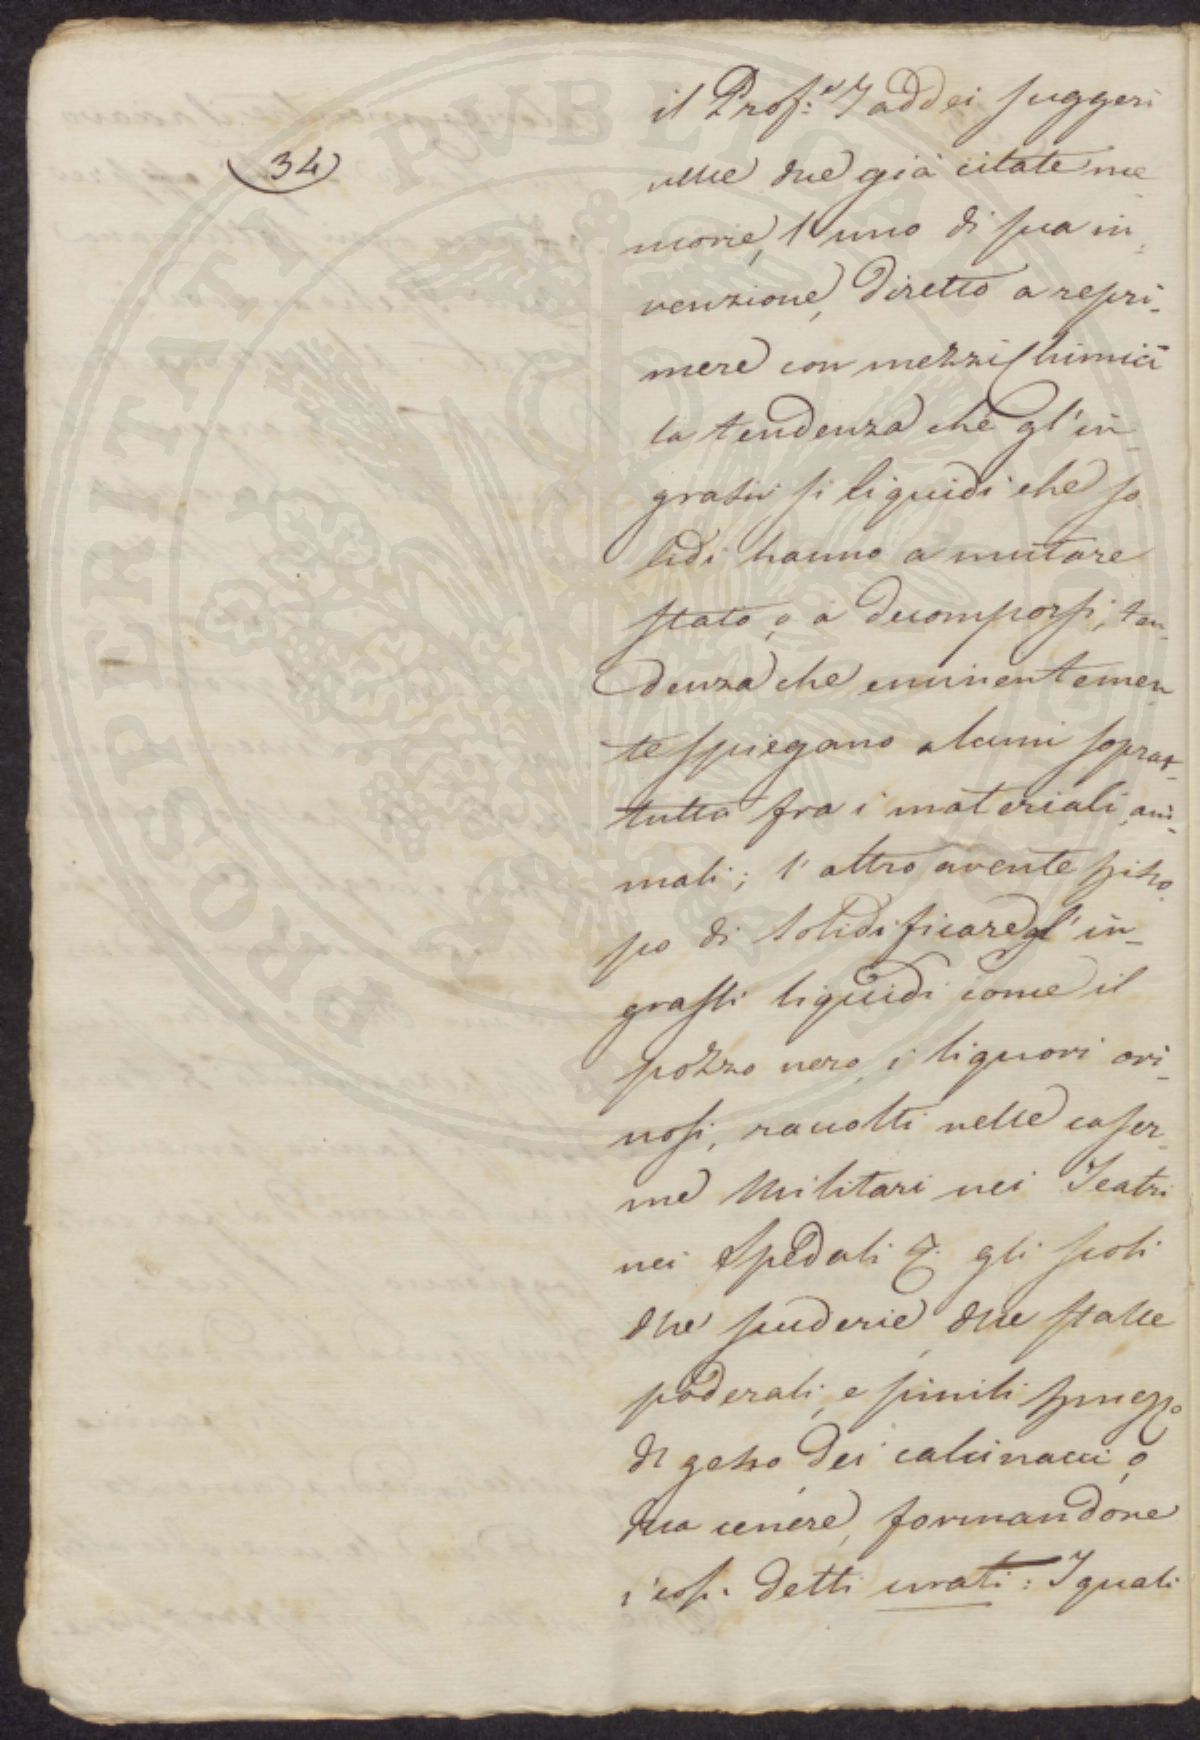 (34)
il Prof:e Taddei suggerì
nelle due già citate me
morie, l'uno di sua in_
venzione, diretto a repri_
mere con mezzi Chimici
la tendenza che gl'in_
grassi si liquidi che so_
lidi hanno a mutare
stato, o a decomporsi, ten_
denza che eminentemen
te spiegano alcuni soprat_
tutto fra i materiali ani_
mali; l'altro avente p isco_
po di solidificare gl'in_
grassi liquidi come il
pozzo nero, i liquori ori_
nosi, raccolti nelle caser_
me Militari nei Teatri
nei Spedali &. gli scoli
dlle scuderie, dlle stalle
poderali, e simili p mezzo
dl gesso, dei calcinacci, o
dlla cenere, formandone
i così detti urati: I quali
PROSPERITATI PVBLICAE